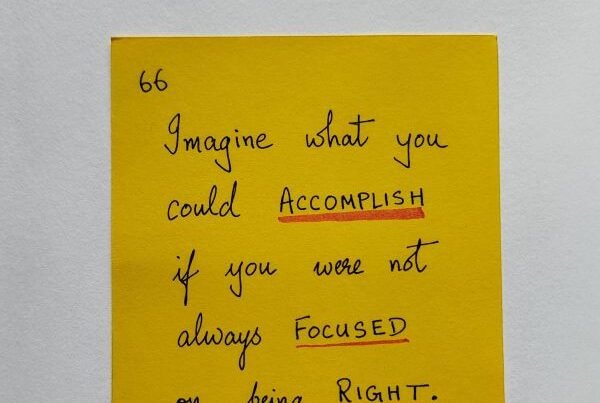 66
Imagine what you
could ACCOMPLISH
if you were not
always FOCUSED
on being RIGHT.